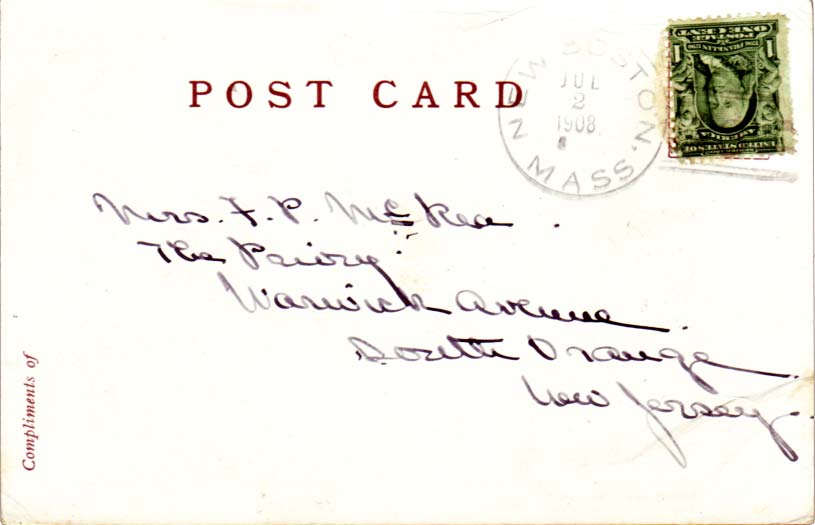 POST CARD
NEW BOSTON, MASS.
JUL
2
1908
ONE CENT
POSTAGE
1706 FRANKLIN 1790
1 1
UNITED STATES OF
AMERICA
Mrs. F. P. McKea
The Priory
Warwick Avenue
South Orange
New Jersey.
Compliments of